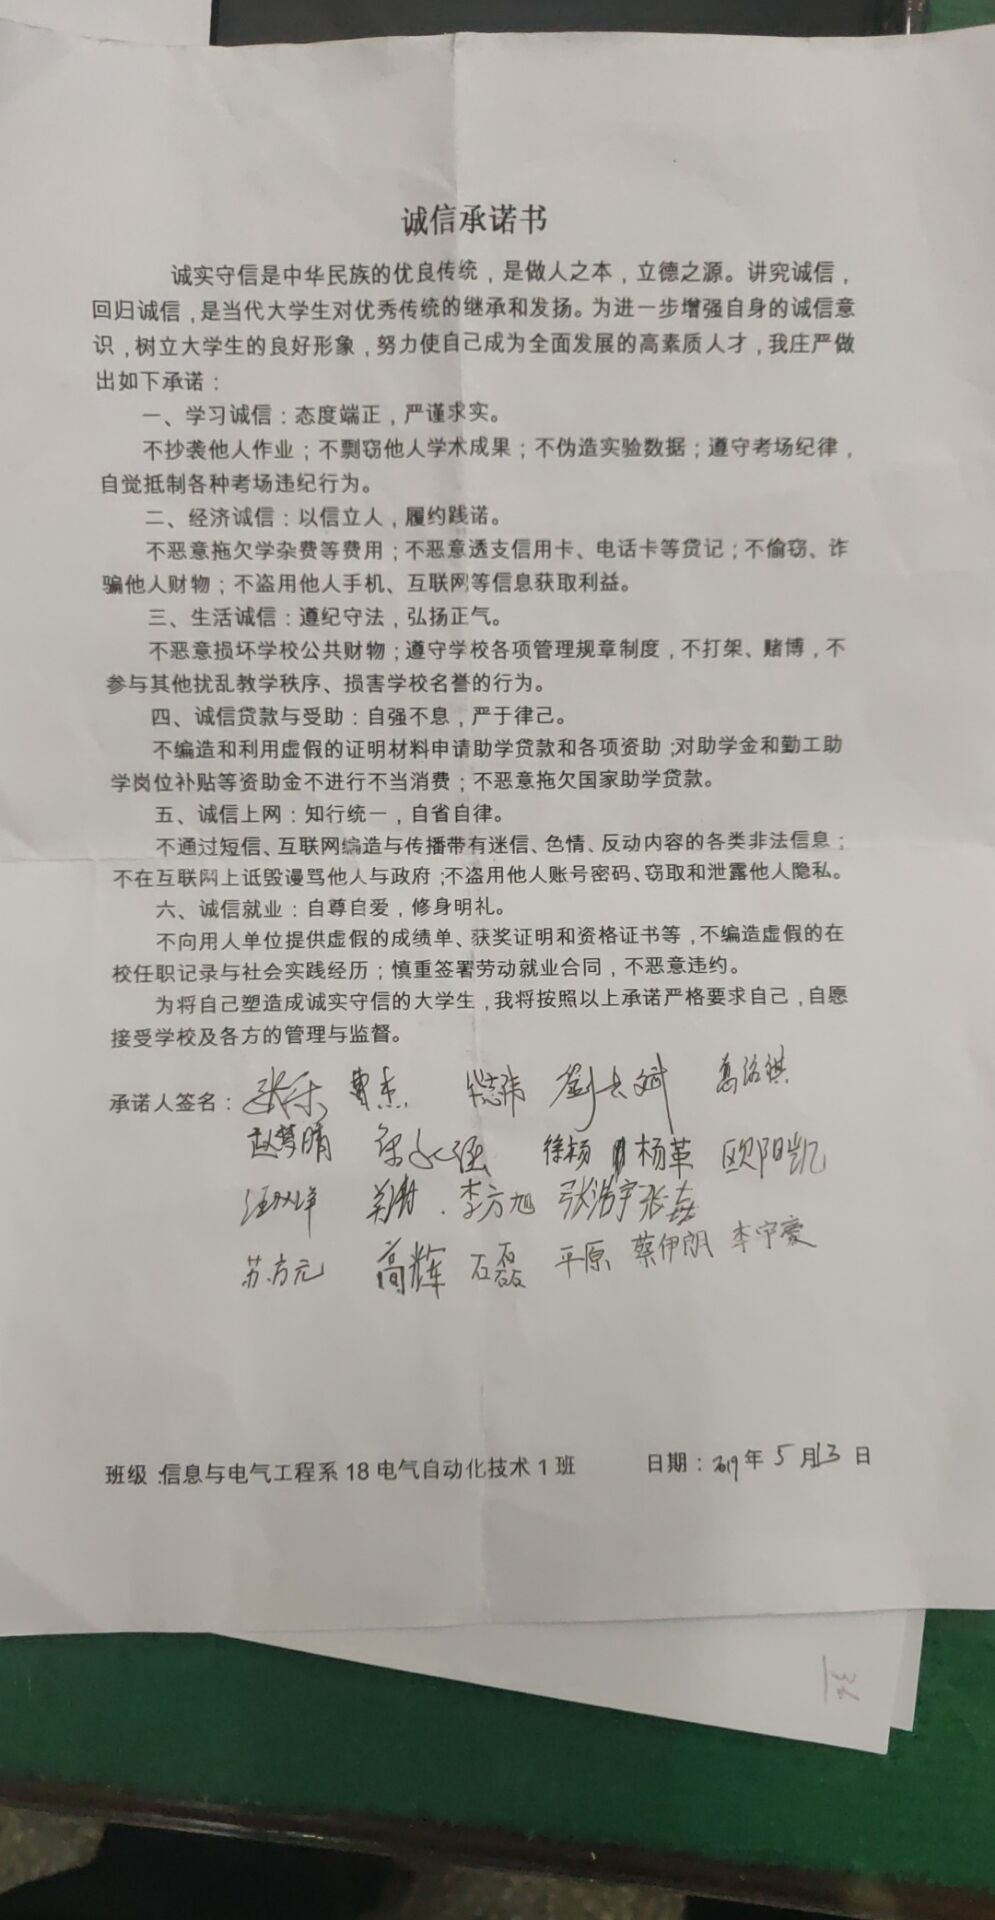 诚信承诺书
诚实守信是中华民族的优良传统，是做人之本，立德之源。讲究诚信，
回归诚信，是当代大学生对优秀传统的继承和发扬。为进一步增强自身的诚信意
识，树立大学生的良好形象，努力使自己成为全面发展的高素质人才，我庄严做
出如下承诺：
一、学习诚信：态度端正，严谨求实。
不抄袭他人作业；不剽窃他人学术成果；不伪造实验数据；遵守考场纪律，
自觉抵制各种考场违纪行为。
二、经济诚信：以信立人，履约践诺。
不恶意拖欠学杂费等费用；不恶意透支信用卡、电话卡等贷记；不偷窃、诈
骗他人财物；不盗用他人手机、互联网等信息获取利益。
三、生活诚信：遵纪守法，弘扬正气。
不恶意损坏学校公共财物；遵守学校各项管理规章制度，不打架、赌博，不
参与其他扰乱教学秩序、损害学校名誉的行为。
四、诚信贷款与受助：自强不息，严于律己。
不编造和利用虚假的证明材料申请助学贷款和各项资助；对助学金和勤工助
学岗位补贴等资助金不进行不当消费；不恶意拖欠国家助学贷款。
五、诚信上网：知行统一，自省自律。
不通过短信、互联网编造与传播带有迷信、色情、反动内容的各类非法信息；
不在互联网上诋毁谩骂他人与政府；不盗用他人账号密码、窃取和泄露他人隐私。
六、诚信就业：自尊自爱，修身明礼。
不向用人单位提供虚假的成绩单、获奖证明和资格证书等，不编造虚假的在
校任职记录与社会实践经历；慎重签署劳动就业合同，不恶意违约。
为将自己塑造成诚实守信的大学生，我将按照以上承诺严格要求自己，自愿
接受学校及各方的管理与监督。
承诺人签名： 张乐 曹杰
赵梦晴 徐杨 杨革 欧阳凯
李方旭 张浩宇 张垚
苏方元 高辉 石磊 平原 蔡伊朗 李宁豪
班级：信息与电气工程系 18 电气自动化技术 1 班 日期：2019 年 5 月 13 日